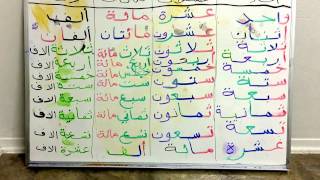 واحد عشرة مائة ألف
اثنان عشرون مائتان ألفان
ثلاثة ثلاثون ثلاث مائة ثلاثة الاف
أربعة أربعون أربع مائة أربعة الاف
خمسة خمسون خمس مائة خمسة الاف
ستة ستون ست مائة ستة الاف
سبعة سبعون سبع مائة سبعة الاف
ثمانية ثمانون ثماني مائة ثمانية الاف
تسعة تسعون تسع مائة تسعة الاف
عشرة مائة ألف عشرة الاف